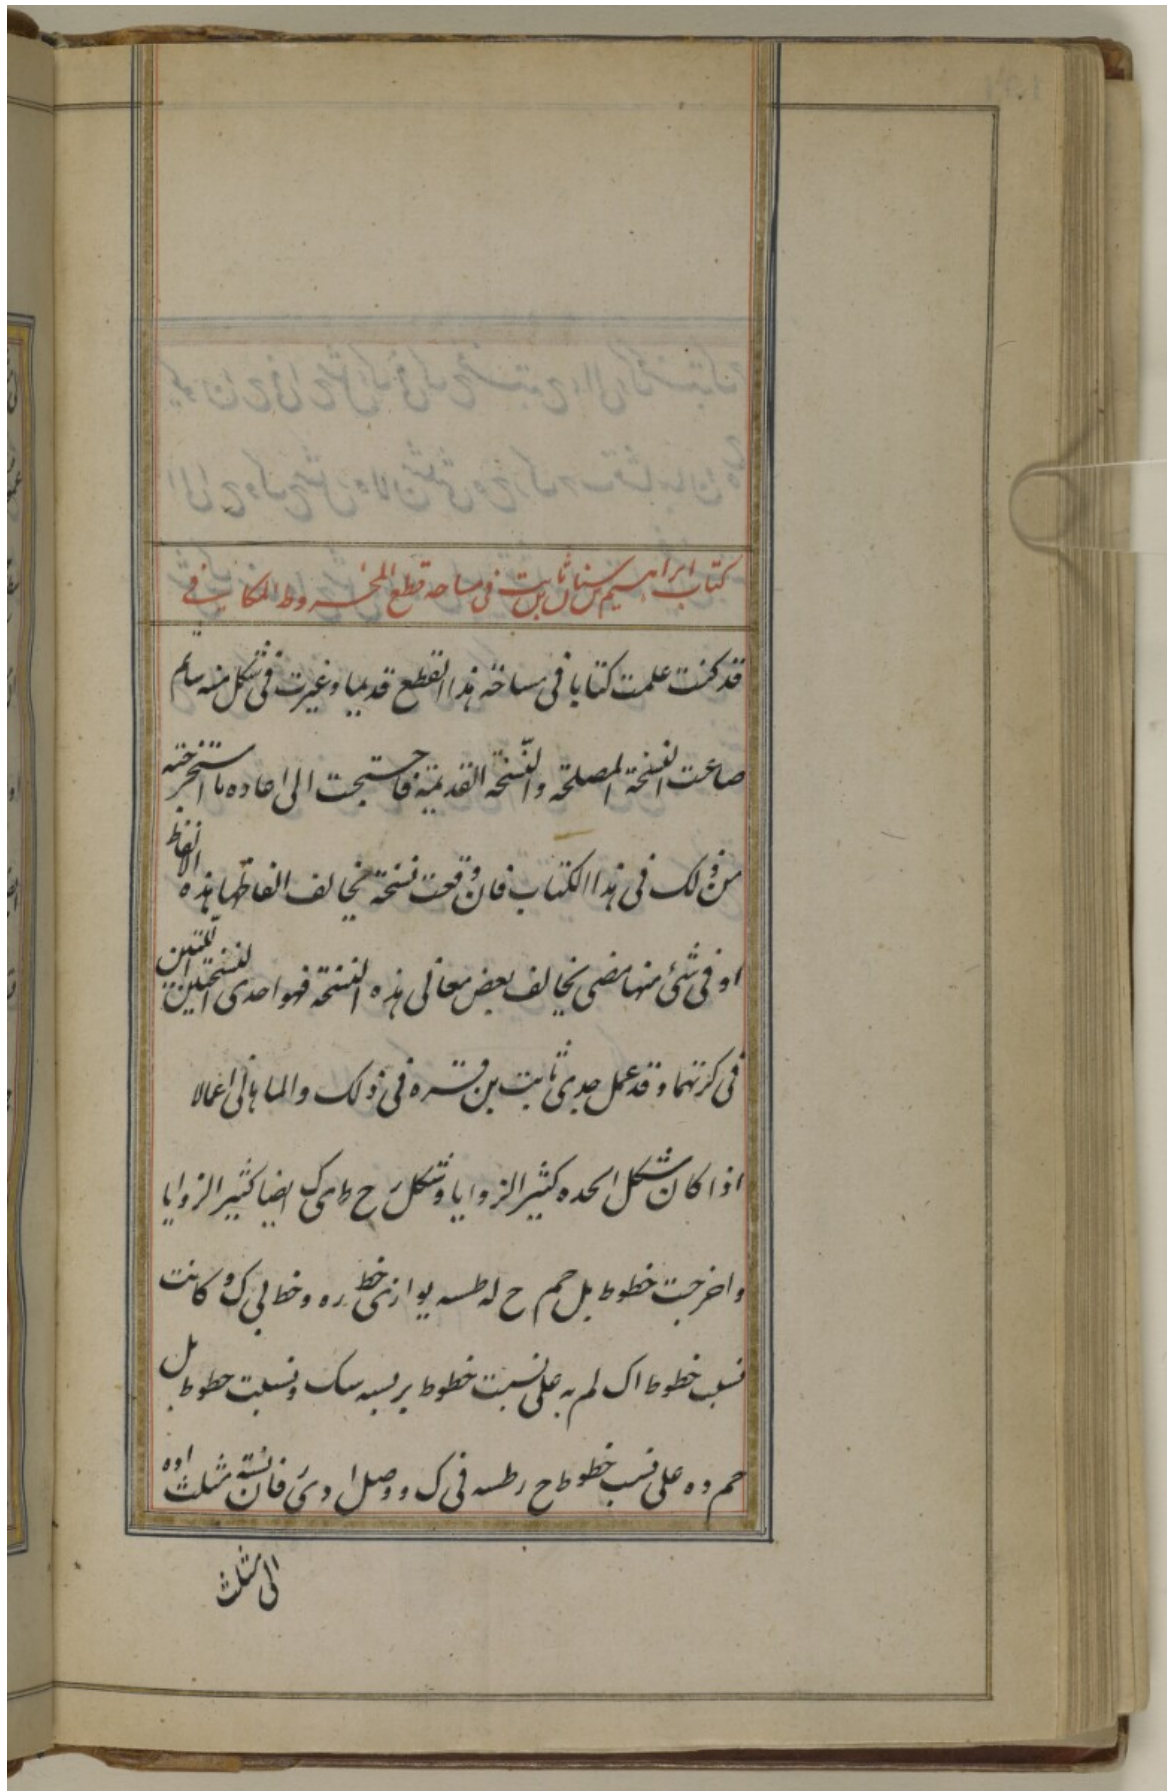 كتاب ابراهيم بن سنان بن ثابت فى مساحه قطع المخروط المكافى
قد كنت علمت كتابا فى مساحة هذا القطع قديما وغيرت فى شكل منه
صاعت النسخة المصلحة والنسخة القديمة فاحتجت الى اعاده ما استخرجته
من ذلك فى هذا الكتاب فان وقعت نسخة يخالف الفاظها هذه الالفاظ
او فى شئ منها مضى يخالف بعض معانى هذه النسخة فهو احدى النسختين اللتين
فى كرتهما وقد عمل جدى ثابت بن قره فى ذلك والماهانى اعمالا
اذا كان شكل ابحده كثير الزوايا وشكل ر ح ط ى ك ايضا كثير الزوايا
واخرجت خطوط بل حم ح له طسه يوازى خط ره وخط بى ك و كانت
نسب خطوط اك لم به على نسبت خطوط بر بسه سك ونسبت خطوط بل
حم ده على نسب خطوط ح رطسه فى ك ووصل ا د ى فان نسبة مثلث اده
الى مثلث